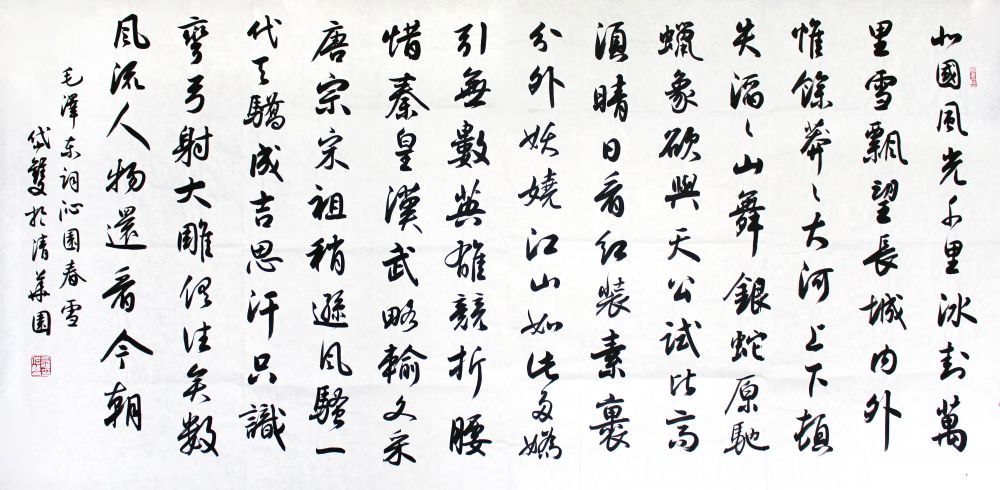 北國風光千里冰封萬
里雪飄望長城内外
惟餘莽〻大河上下頓
失滔〻山舞銀蛇原馳
蠟象欲與天公試比高
須晴日看红裝素裹
分外妖嬈江山如此多嬌
引無數英雄競折腰
惜秦皇漢武略輸文采
唐宗宋祖稍遜風騷一
代天驕成吉思汗只識
彎弓射大雕俱往矣数
風流人物還看今朝
毛澤东詞沁園春雪
岱雙於清華園